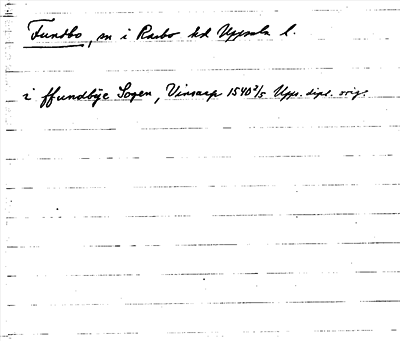 Funbo, sn i Rasbo hd Uppsala l.
i ffundbye Sogen, Vinsarp 1540 2/5 Upps. dipl. orig.